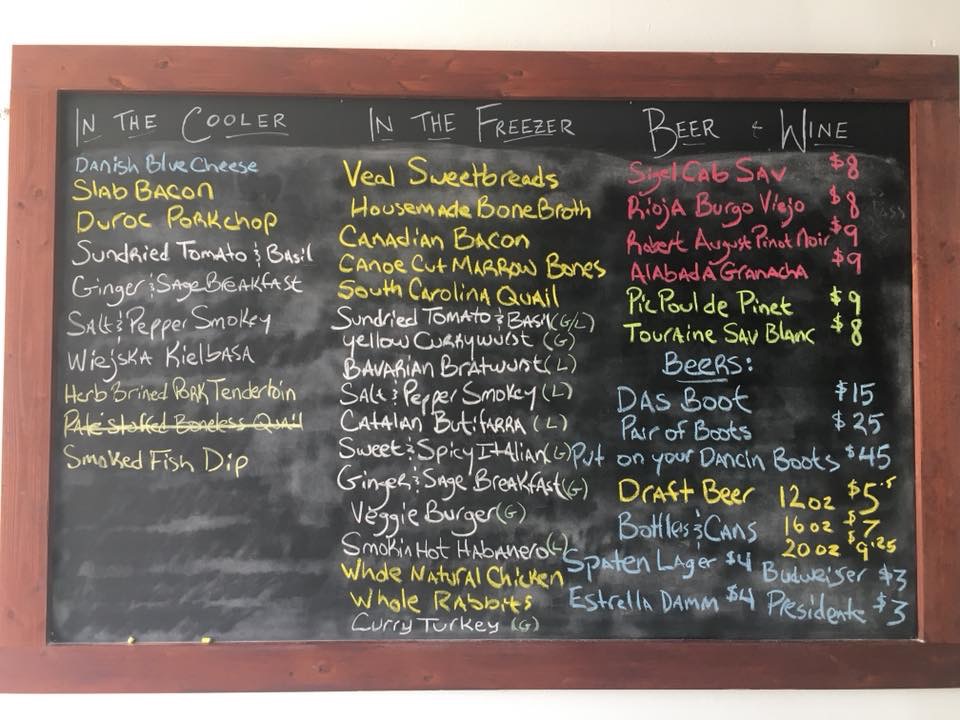 IN THE COOLER
Danish Blue Cheese
Slab Bacon
Duroc Porkchop
Sundried Tomato & Basil
Ginger & Sage Breakfast
Salt & Pepper Smokey
Wiejska Kielbasa
Herb Brined Pork Tenderloin
Pate Stuffed Boneless Quail
Smoked Fish Dip
IN THE FREEZER
Veal Sweetbreads
Housemade Bone Broth
Canadian Bacon
Canoe Cut Marrow Bones
South Carolina Quail
Sundried Tomato & Basil (G/L)
Yellow Currywurst (G)
Bavarian Bratwurst (L)
Salt & Pepper Smokey (L)
Catalan Butifarra (L)
Sweet & Spicy Italian (G)
Ginger & Sage Breakfast (G)
Veggie Burger (G)
Smokin Hot Habanero (L)
Whole Natural Chicken
Whole Rabbits
Curry Turkey (G)
BEER & WINE
Sigel Cab Sav $8
Rioja Burgo Viejo $8
Robert August Pinot Noir $9
Alabada Granacha $9
Pic Poul de Pinet $9
Touraine Sav Blanc $8
BEERS:
Das Boot $15
Pair of Boots $25
Put on your Dancin Boots $45
Draft Beer 12oz $5.5
16oz $7
20oz $9.25
Bottles & Cans
Spaten Lager $4 Budweiser $3
Estrella Damm $4 Presidente $3